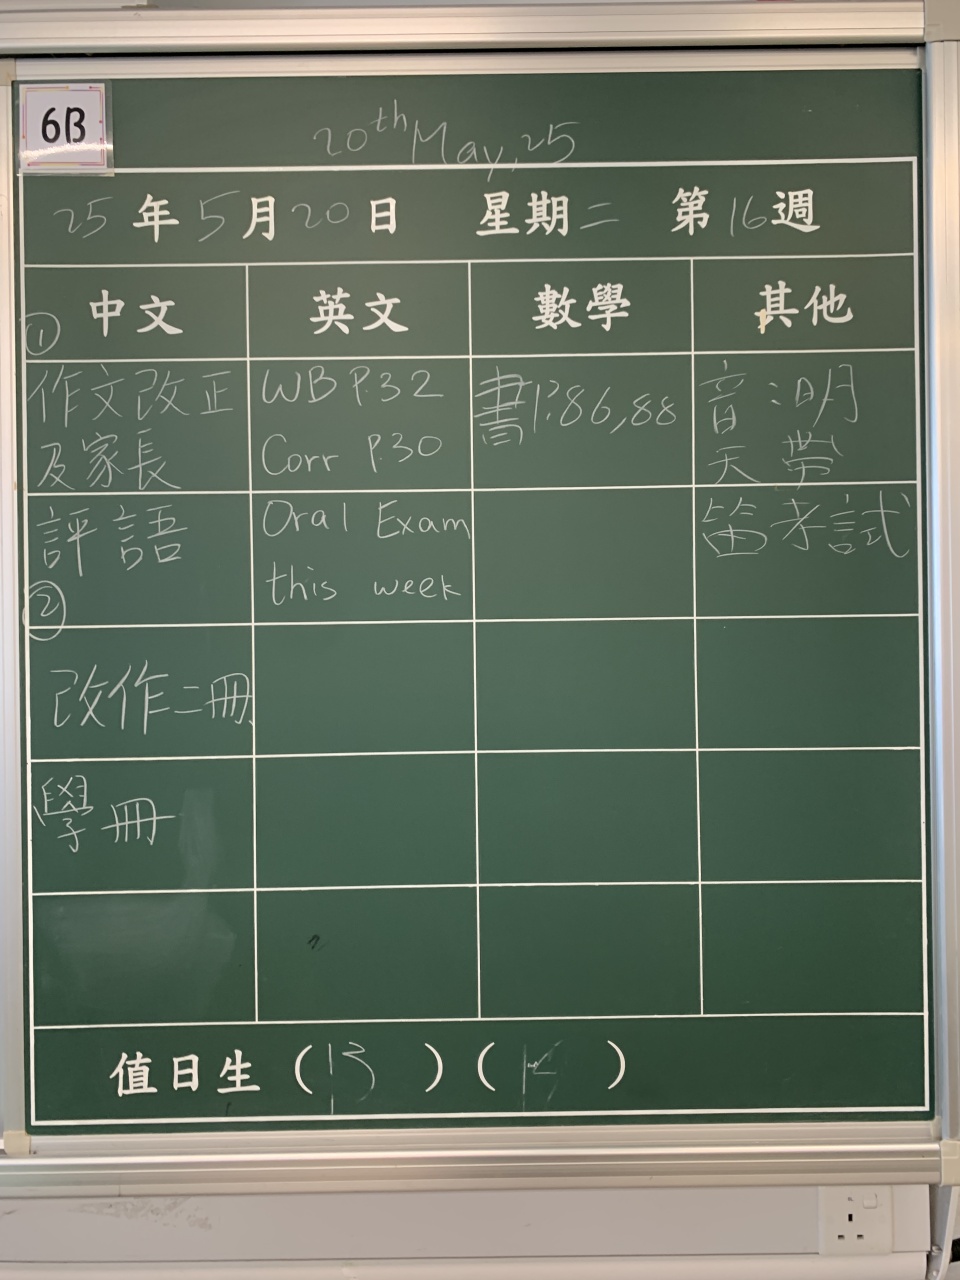 6B
20th May, 25
25年5月20日 星期二 第16週
中文 英文 數學 其他
①
作文改正
及家長
評語
②
改作二冊
學冊
WB P.32
Corr P.30
Oral Exam
this week
書P.86,88
音:明
天帶
笛考試
值日生(13)( )